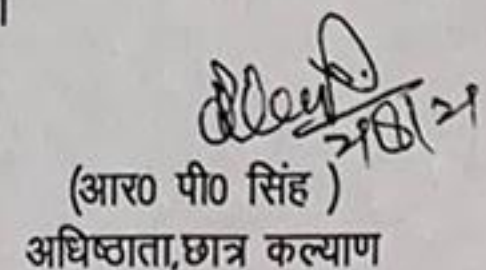 (आर० पी० सिंह )
अधिष्ठाता,छात्र कल्याण